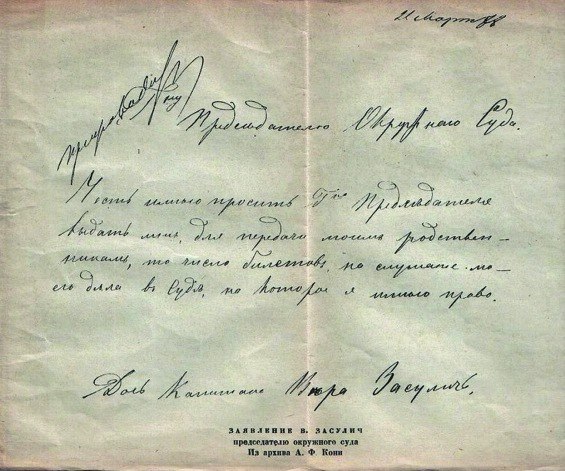 21 Марта 78
Предсѣдателю Окружнаго Суда.
Честь имѣю просить Гна Предсѣдателя
выдать мнѣ, для передачи моимъ родствен–
никамъ, то число билетовъ, на слушанье мо–
его дѣла въ Судѣ, на которое я имѣю право.
Дочь Капитана Вѣра Засуличъ.
ЗАЯВЛЕНИЕ В. ЗАСУЛИЧ
председателю окружного суда
Из архива А. Ф. Кони